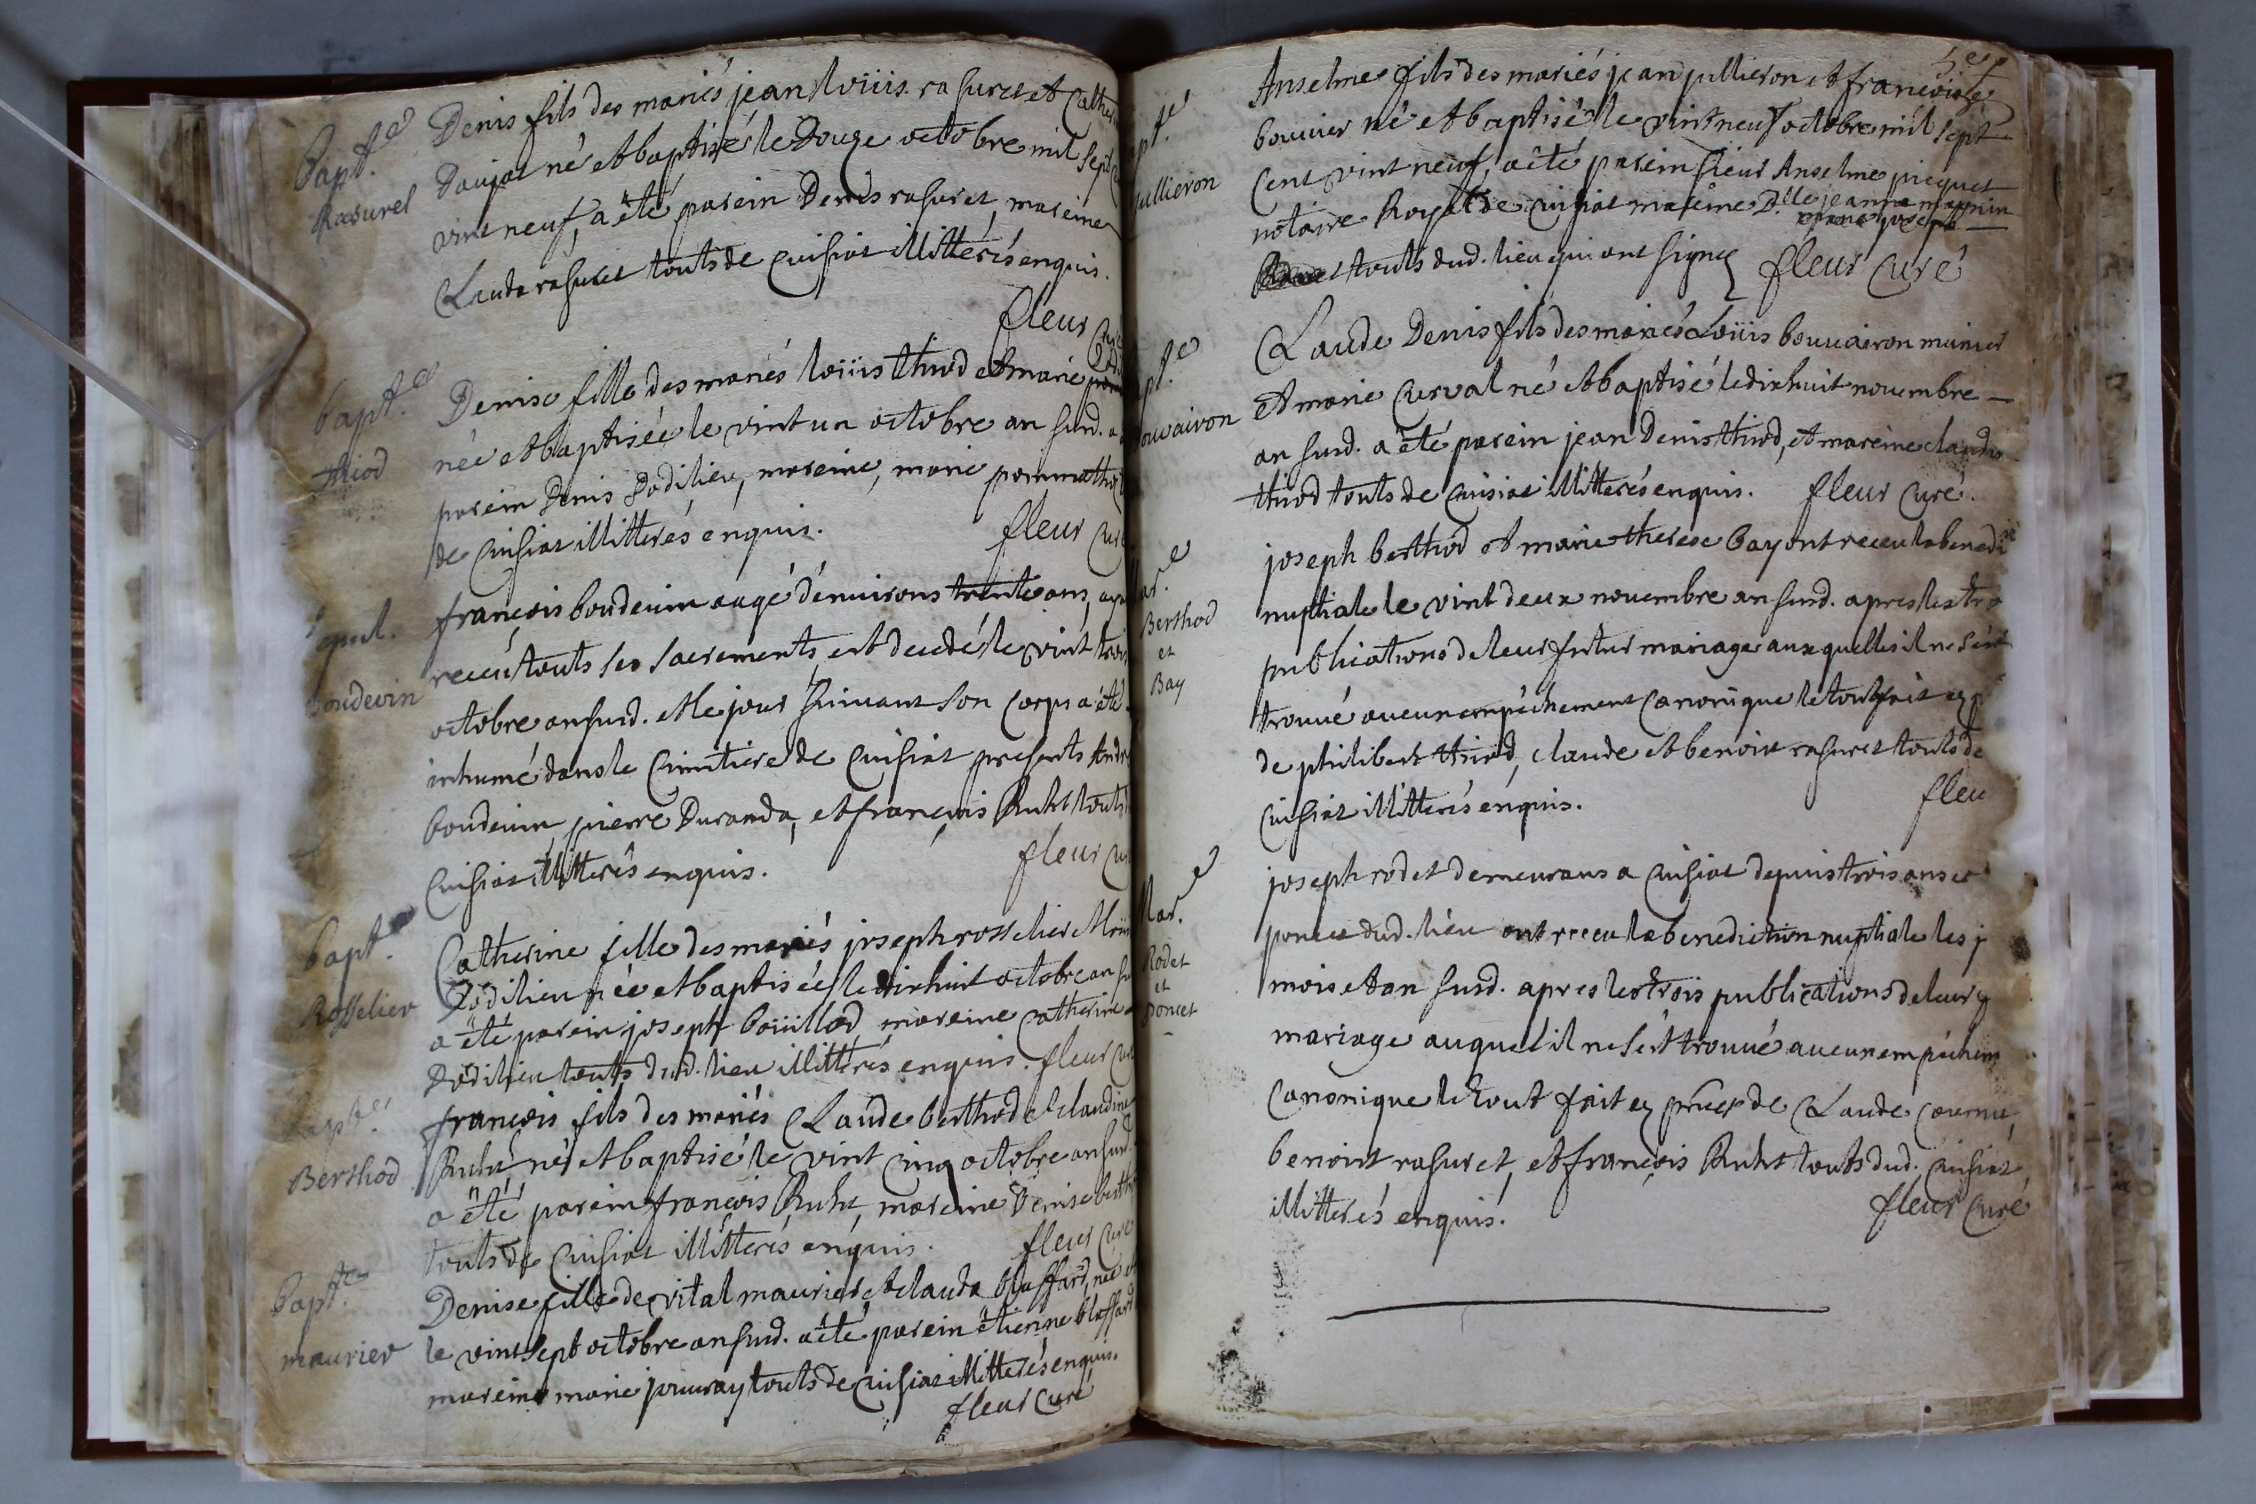 Bapt.e
Rasurel
Denis fils des mariés jean loüis rasurel et Cather
Doujat né et baptisé le Douze octobre mil sept
vint neuf, a été parein Denis rasurel, mareine
Clauda rasurel touts de Cuisiat illitterés enquis.
fleur Curé
bapt.e
thiod
Denise fille des mariés loüis thiod et marie
née et baptisée le vint un octobre an susd. a
parein Denis Dodilieu, mareine, marie pommathod
de Cuisiat illitterés enquis. fleur cur
sepul.
boudevin
françois boudevin aagé d'environs trente ans, aya
receu touts ses sacrements, est decedé le vint trois
octobre an susd. et le jour suivant son corps a été
inhumé dans le Cimitiere de Cuisiat presents Andre
boudevin, pierre Duranda, et françois Ruht touts
Cuisiat illitterés enquis. fleur cu
bapt.e
Rosselier
Catherine fille des mariés joseph rosselier et
Dodilieu née et baptisée le dixhuit octobre an su
a été parein joseph boüillod mareine Catherine
Dodilieu touts dud. lieu illitterés enquis. fleur cur
bapt.e
Berthod
françois fils des mariés Claude berthod et claudine
Ruht né et baptisé le vint cinq octobre an susd.
a été parein françois Ruht, mareine Denise berth
touts de Cuisiat illitterés enquis. fleur curé
bapt.e
maurier
Denise fille de vital maurier et clauda bloffard, née et
le vint sept octobre an susd. a été parein étienne bloffard
mareine marie jouvray touts de Cuisiat illitterés enquis.
fleur curé
apt.e
jullieron
Anselme fils des mariés jean jullieron et françoise
bouvier né et baptisé le vint neuf octobre mil sept
Cent vint neuf, a été parein sieur Anselme picquet
notaire Royal de cuisiat mareine D.lle jeanne marie
touts dud. lieu qui ont signé fleur Curé
apt.e
bouvairon
Claude Denis fils des mariés Loüis bouvairon munier
et marie Curval né et baptisé le dixhuit novembre —
an susd. a été parein jean Denis thiod, et mareine clauda
thiod touts de Cuisiat illitterés enquis. fleur Curé.
mar.e
Berthod
et
Bay
joseph berthod et marie therese bay ont receu la benedi
nuptiale le vint deux novembre an susd. apres les tro
publications de leur futur mariage aux quelles il ne s'est
trouvé aucun empéchement Canonique le tout fait en
de philibert thiod, claude et benoit rasurel touts de
Cuisiat illitterés enquis. fleu
Mar.e
Rodet
et
Poncet
joseph rodet demeurans a Cuisiat depuis trois ans et
poncet dud. lieu ont receu la benediction nuptiale les j
mois et an susd. apres les trois publications de leur
mariage auquel il ne s'est trouvé aucun empéchem
Canonique le tout fait en prnce de Claude
benoit rasurel, et françois Ruht touts dud. Cuisiat
illitterés enquis. fleur Curé